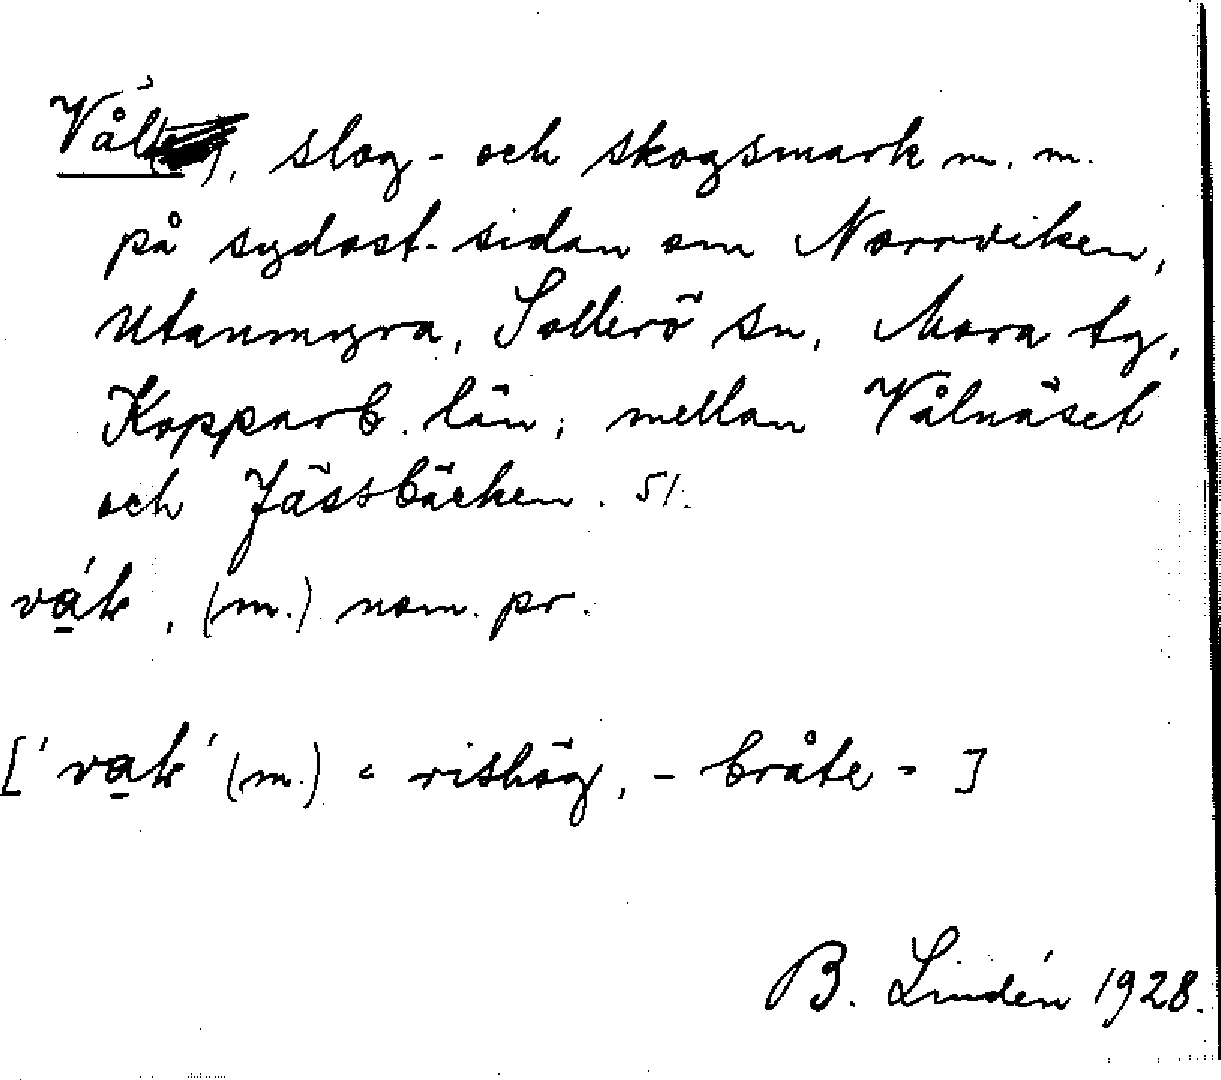 Vål, slog- och skogsmark m. m.
på sydost-sidan om Norrviken,
Utanmyra, Sollerö sn, Mora tg,
Kopparb. län; mellan Vålnäset
och Jässbäcken. 51.
(m.) nom. pr.
(m.) = rishög, - bråte - ]
B. Lindén 1928.